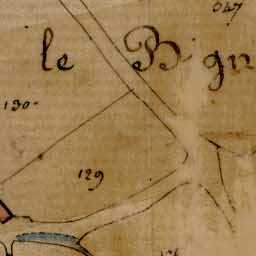 647
le Bign
130-
129